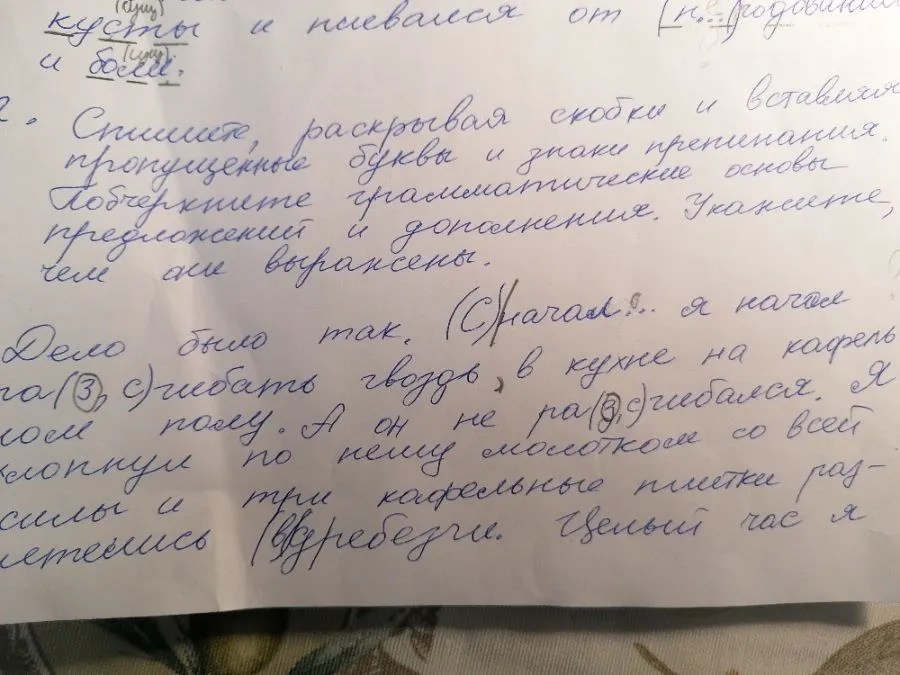 (сущ)
кусты и плевался от [н...]годовани
(сущ).
и боли.
2. Спишите, раскрывая скобки и вставляя
пропущенные буквы и знаки препинания.
Подчеркните грамматические основы
предложений и дополнения. Укажите,
чем они выражены.
Дело было так. (С)/начал... я начал
ра(з, с)гибать гвоздь, в кухне на кафель
ном полу. А он не ра(з,с)гибался. Я
хлопнул по нему молотком со всей
силы и три кафельные плитки раз-
летелись (в)дребезги. Целый час я